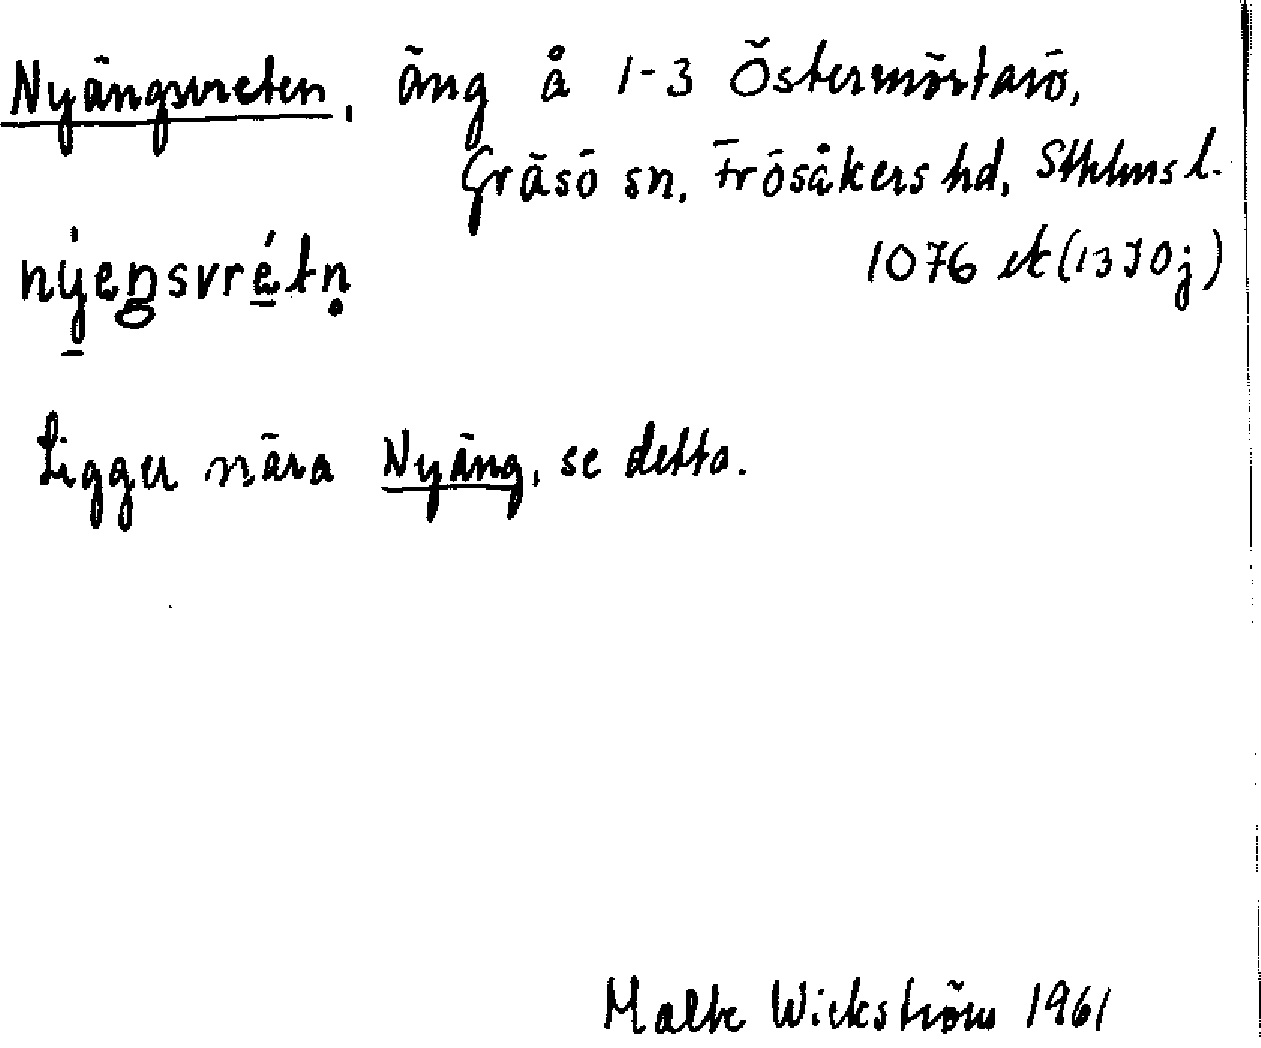 Nyängsvreten, äng å 1-3 Östermörtarö,
Gräsö sn, Frösåkers hd, Sthlms l.
nyeŋsvrétṇ
1076 ek (13 I 0 j)
Ligger nära Nyäng, se detta.
Malte Wickström 1961